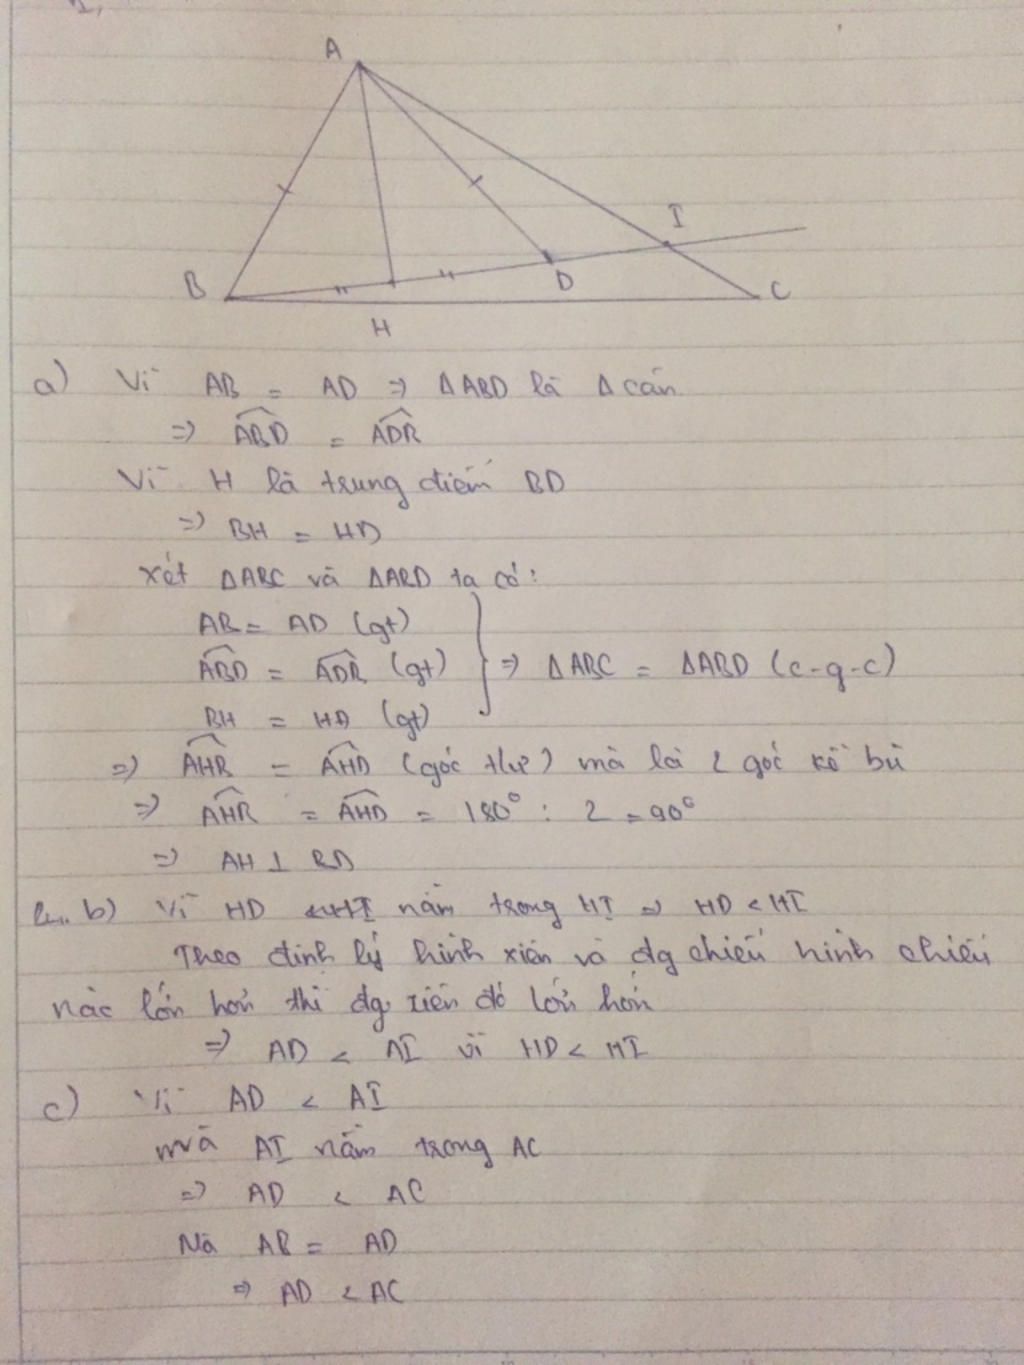 A
I
B
D
C
H
a) Vì AB = AD => ΔABD là Δ cân
=> ABD = ADB
Vì H là trung điểm BD
=> BH = HD
xét ΔABC và ΔABD ta có:
AB = AD (gt)
ABD = ADB (gt) => ΔABC = ΔABD (c-g-c)
BH = HD (gt)
=> AHB = AHD (góc tư) mà là 2 góc kề bù
=> AHB = AHD = 180° : 2 = 90°
=> AH ⊥ BD
b) Vì HD nằm trong HI => HD < HI
Theo định lý hình xiên và đg chiếu hình chiếu
nào lớn hơn thì đg xiên đó lớn hơn
=> AD < AI vì HD < HI
c) Vì AD < AI
mà AI nằm trong AC
=> AD < AC
Mà AB = AD
=> AD < AC